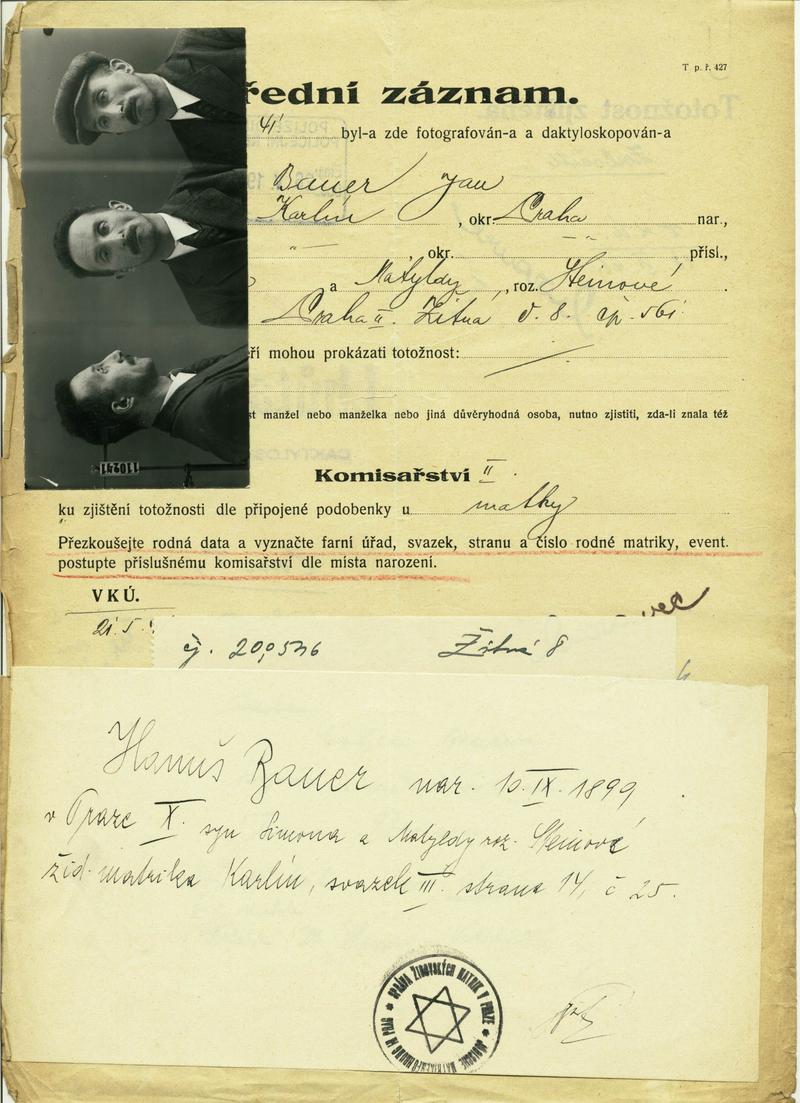 T p. ř. 427
řední záznam.
41 byl-a zde fotografován-a a daktyloskopován-a
Bauer Jan
Karlín, okr. Praha nar.,
-"- , okr. -"- přísl.,
a Matyldy, roz. Steinové.
Praha II. Žitná č. 8. čp. 561
eří mohou prokázati totožnost:
st manžel nebo manželka nebo jiná důvěryhodná osoba, nutno zjistiti, zda-li znala též
Komisařství II.
ku zjištění totožnosti dle připojené podobenky u matky
Přezkoušejte rodná data a vyznačte farní úřad, svazek, stranu a číslo rodné matriky, event.
postupte příslušnému komisařství dle místa narození.
VKÚ.
21. 5.
110241
čj. 20,0546 Žitná 8
Hanuš Bauer nar. 10. IX. 1899
v Praze X. syn Simona a Matyldy roz. Steinové
žid. matrika Karlín, svazek III. strana 14, č 25.
SPRÁVA ŽIDOVSKÝCH MATRIK V PRAZE